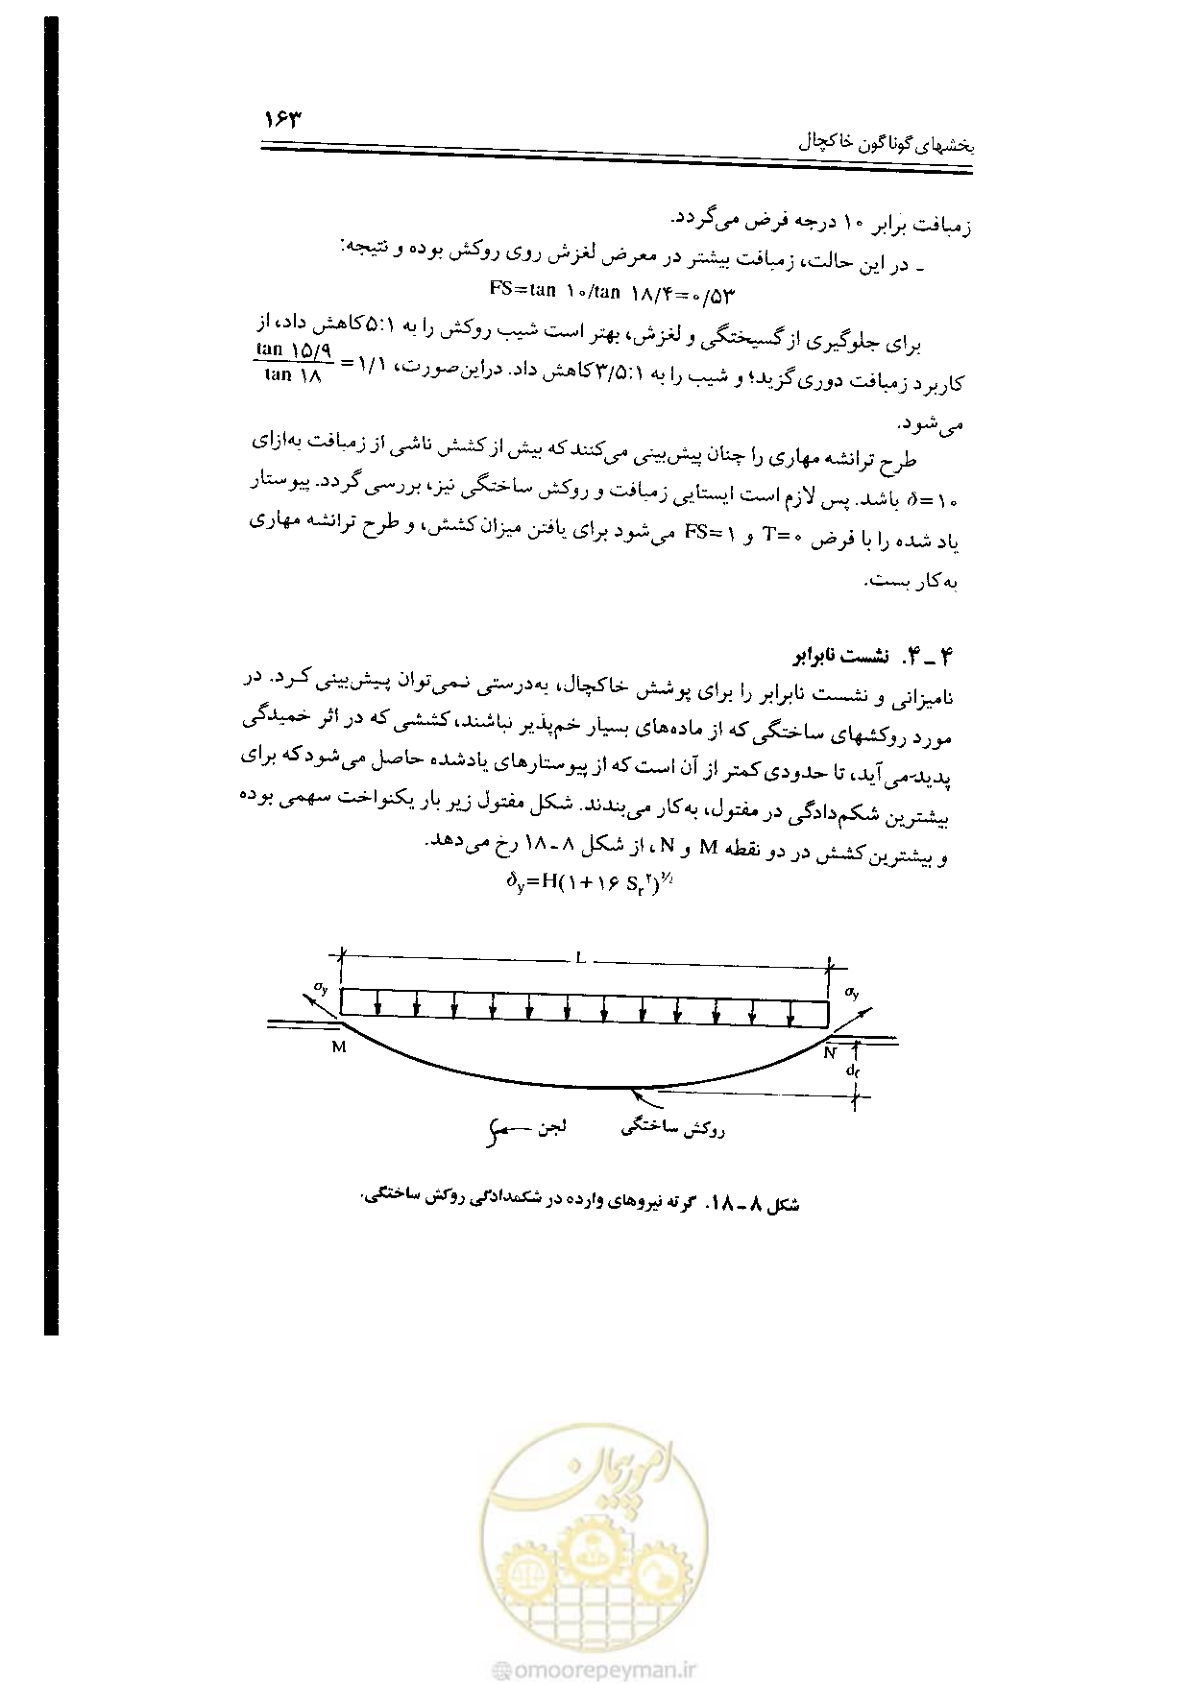 ۱۶۳
بخشهای گوناگون خاکچال
زمبافت برابر ۱۰ درجه فرض می‌گردد.
ـ در این حالت، زمبافت بیشتر در معرض لغزش روی روکش بوده و نتیجه:
FS=tan ۱۰/tan ۱۸/۴=۰/۵۳
برای جلوگیری از گسیختگی و لغزش، بهتر است شیب روکش را به ۵:۱ کاهش داد، از
کاربرد زمبافت دوری گزید؛ و شیب را به ۳/۵:۱ کاهش داد. دراین‌صورت، ۱/۱ = tan ۱۵/۹ / tan ۱۸
می‌شود.
طرح ترانشه مهاری را چنان پیش‌بینی می‌کنند که بیش از کشش ناشی از زمبافت به‌ازای
δ=۱۰ باشد. پس لازم است ایستایی زمبافت و روکش ساختگی نیز، بررسی گردد. پیوستار
یاد شده را با فرض T=۰ و FS=۱ می‌شود برای یافتن میزان کشش، و طرح ترانشه مهاری
به‌کار بست.
۴ ـ ۴. نشست نابرابر
نامیزانی و نشست نابرابر را برای پوشش خاکچال، به‌درستی نمی‌توان پیش‌بینی کرد. در
مورد روکشهای ساختگی که از ماده‌های بسیار خم‌پذیر نباشند، کششی که در اثر خمیدگی
پدید‌می‌آید، تا حدودی کمتر از آن است که از پیوستارهای یادشده حاصل می‌شود که برای
بیشترین شکم‌دادگی در مفتول، به‌کار می‌بندند. شکل مفتول زیر بار یکنواخت سهمی بوده
و بیشترین کشش در دو نقطه M و N، از شکل ۸ ـ ۱۸ رخ می‌دهد.
δy=H(۱+۱۶ Sr۲)½
L
σy
σy
M
N
dr
روکش ساختگی
لجن
شکل ۸ ـ ۱۸. گرته نیروهای وارده در شکمدادگی روکش ساختگی.
امور پیمان
@omoorepeyman.ir